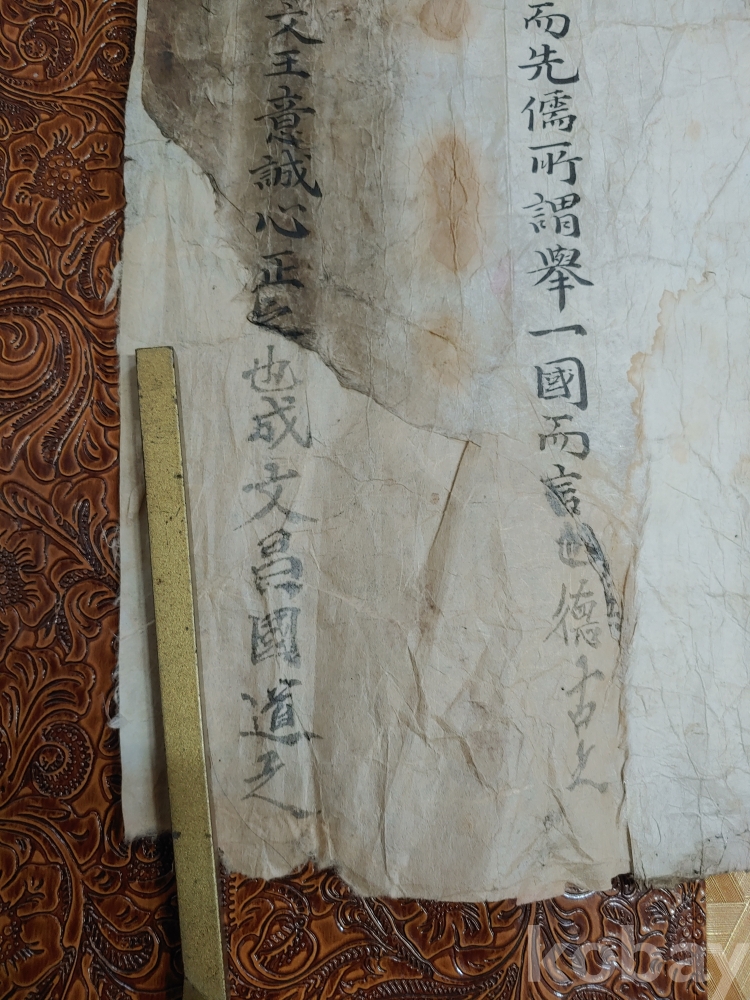 而先儒所謂舉一國而言也德古之
文王意誠心正之也成文呂國道之
kobay